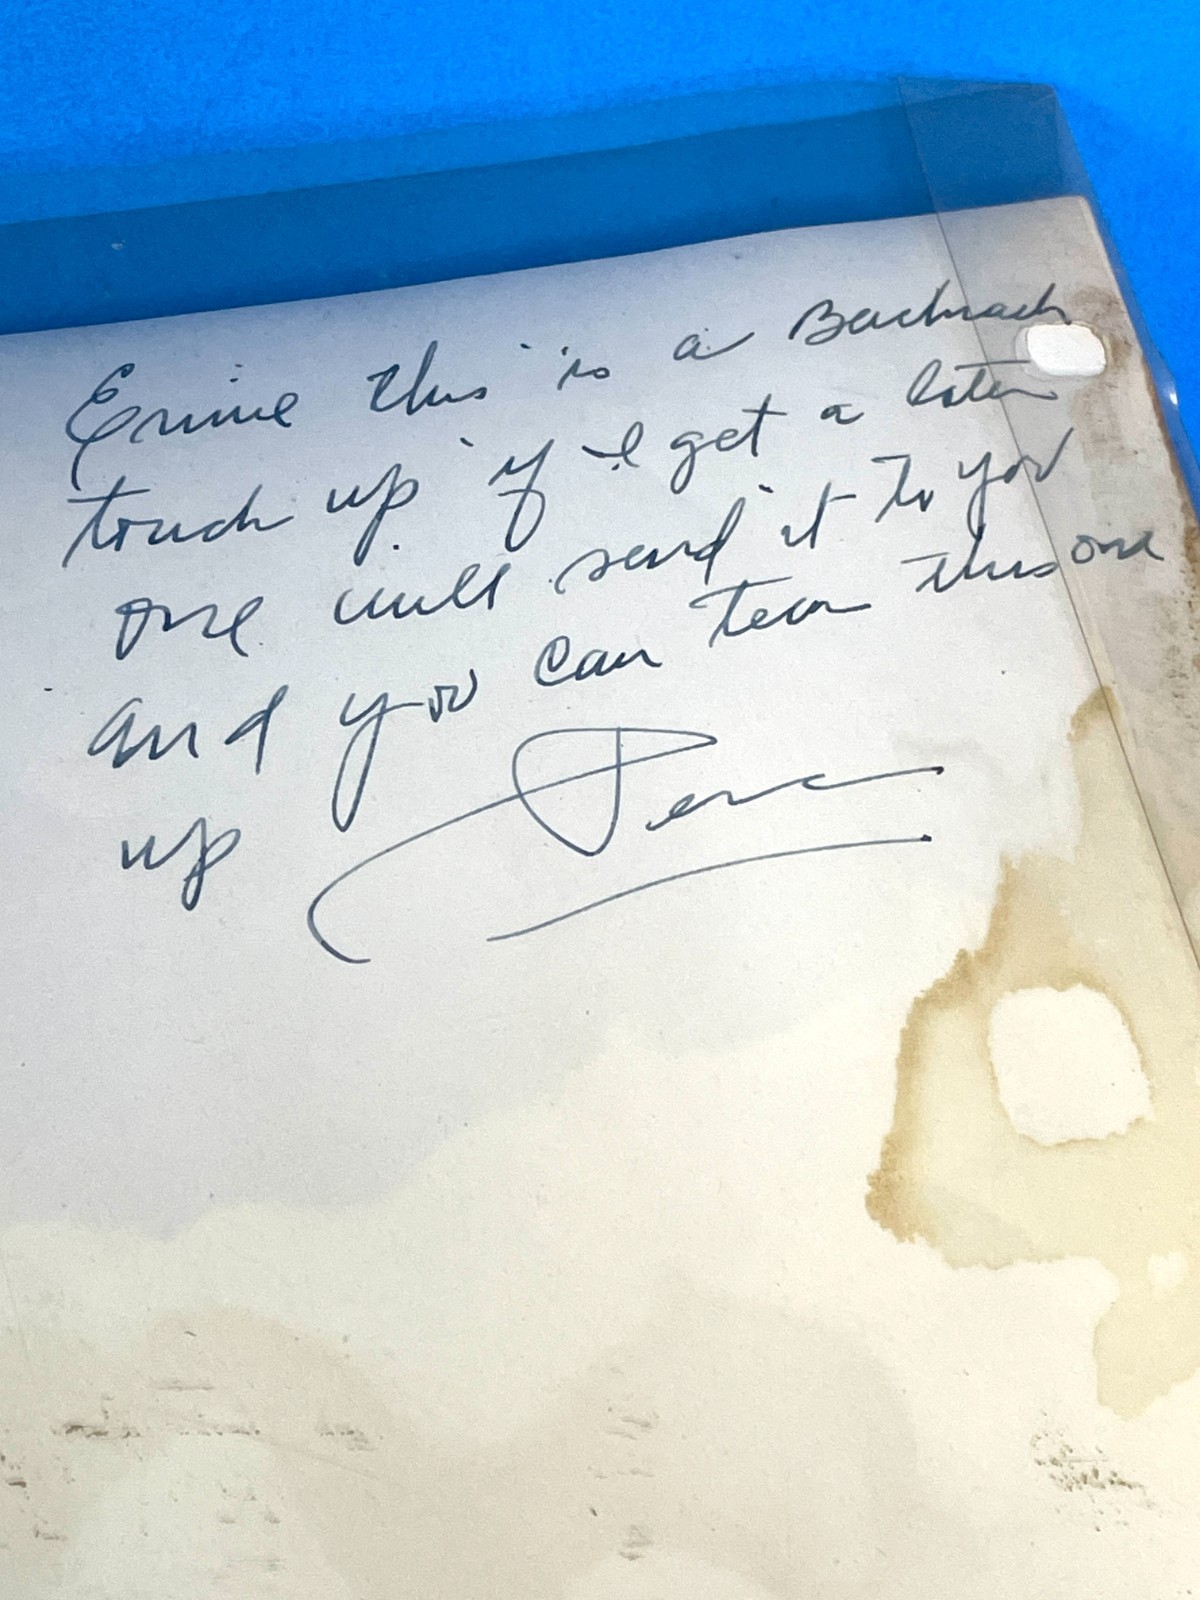 Ernie this is a Bachrach
touch up if I get a later
one will send it to you
and you can tear this one
up